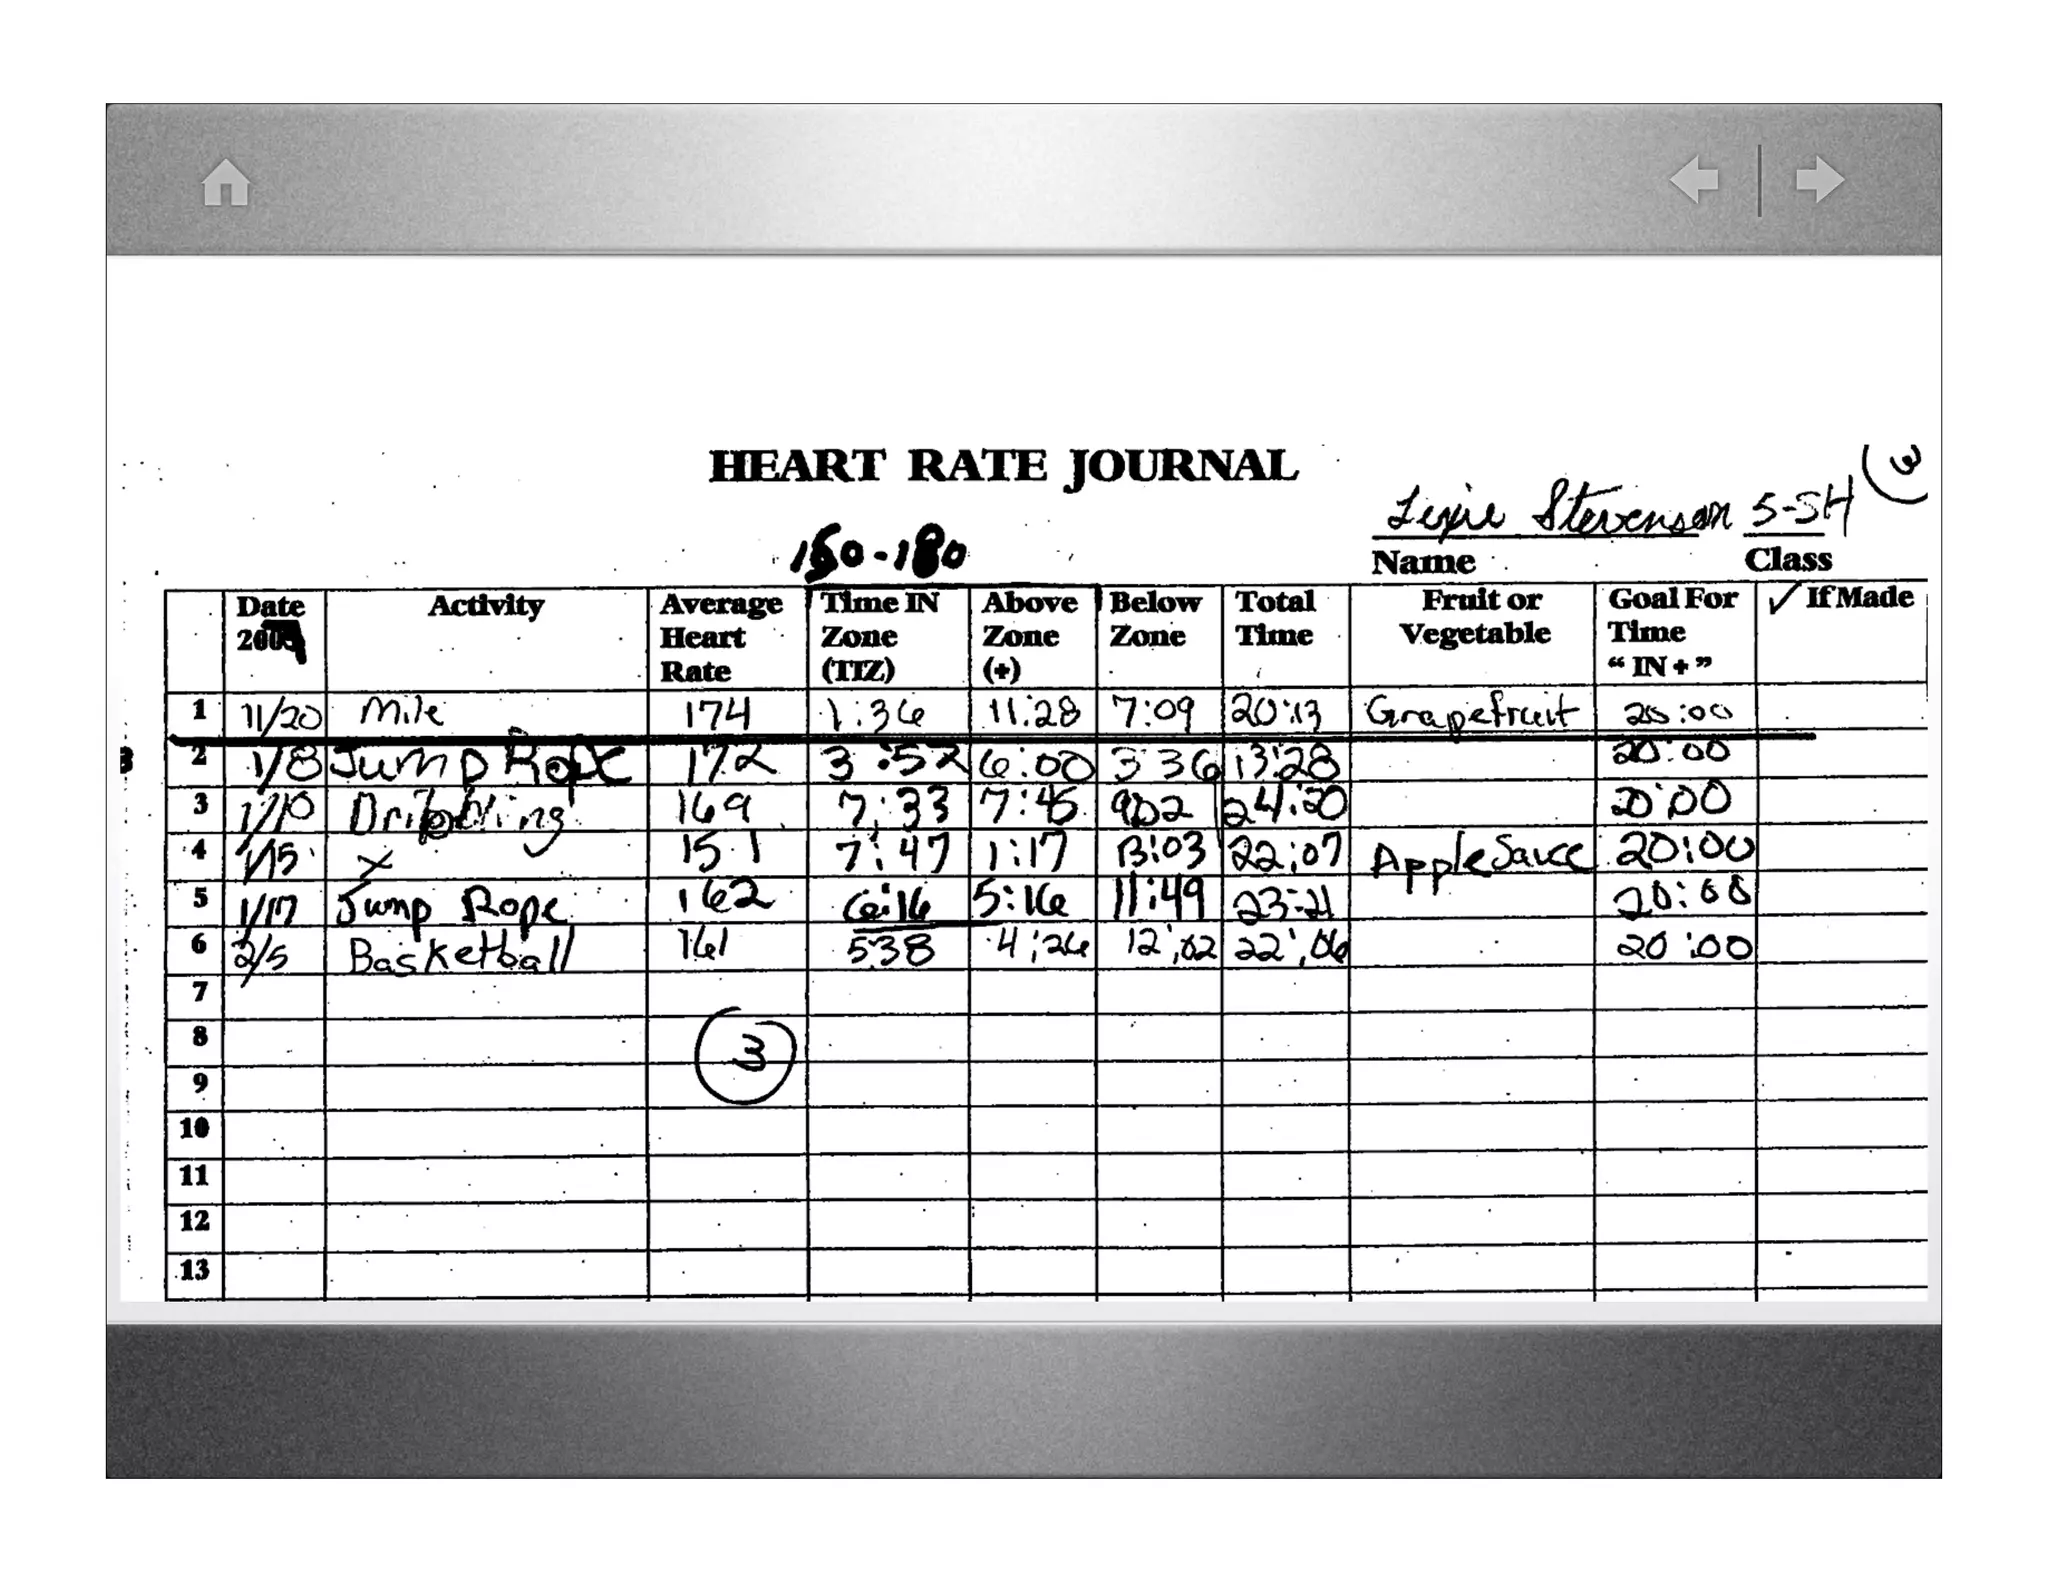 HEART RATE JOURNAL
3
Lexie Stevenson 5-5H
150-180
Name Class
Date Activity Average Heart Rate Time IN Zone (TIZ) Above Zone (+) Below Zone Total Time Fruit or Vegetable Goal For Time “IN+” ✓ If Made
1 11/20 Mile 174 1:36 11:28 7:09 20:13 Grapefruit 20:00
2 1/8 Jump Rope 172 3:52 6:00 3:36 13:28 20:00
3 1/10 Dribbling 169 7:33 7:45 9:02 24:20 20:00
4 1/15 x 151 7:47 1:17 13:03 22:07 Apple Sauce 20:00
5 1/17 Jump Rope 162 6:16 5:16 11:49 23:21 20:00
6 2/5 Basketball 161 5:38 4:26 12:02 22:06 20:00
7
8
3
9
10
11
12
13